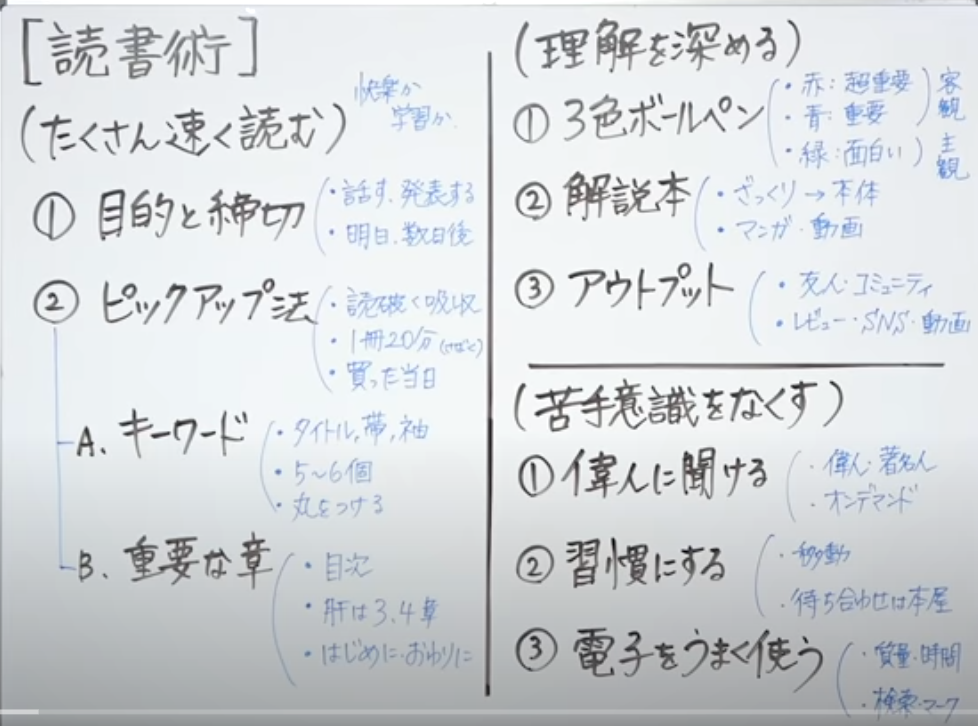 [読書術]
快楽か
学習か.
(たくさん速く読む)
① 目的と締切
・話す、発表する
・明日、数日後
② ピックアップ法
・読破<吸収
・1冊20分
・買った当日
A. キーワード
・タイトル,帯,袖
・5~6個
・丸をつける
B. 重要な章
・目次
・肝は3,4章
・はじめに・おわりに
(理解を深める)
① 3色ボールペン
・赤:超重要
・青:重要
客観
・緑:面白い
主観
② 解説本
・ざっくり→本体
・マンガ・動画
③ アウトプット
・友人・コミュニティ
・レビュー・SNS・動画
(苦手意識をなくす)
① 偉人に聞ける
・偉人・著名人
・オンデマンド
② 習慣にする
・移動
・待ち合わせは本屋
③ 電子をうまく使う
・質量・時間
・検索・マーク